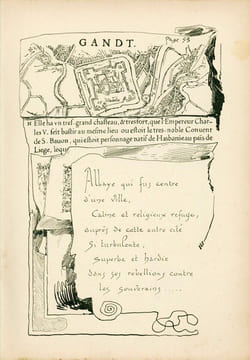 Page 55
GANDT.
Elle ha vn tres-grand chasteau, & tresfort, que l'Empereur Char-
les V. feit bastir au mesme lieu ou estoit le tres-noble Conuent
de S. Bauon, qui estoit personnage natif de Hasbanieau pais de
Liege, lequ
Abbaye qui fus centre
d'une ville,
Calme et religieux refuge,
auprès de cette autre cité
Si turbulente,
Superbe et hardie
dans ses rebellions contre
les souverains .....